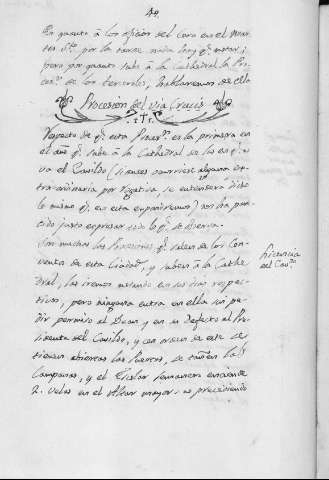 49.
En quanto â los oficios del Coro en el Mar-
tes S.to por la tarde nada hay q.e notar;
pero por quanto sube â la Cathedral la Pro-
cesn de los terceros, hablaremos de ella
Procesion del Via Crucis
Respecto de q.e esta Proces.n es la primera en
el año q.e sube â la Cathedral de las en q.e no
va el Cavildo (sino es ocurriese alguna ex-
traordinaria por Rogativa, se entenderá dicho
lo mismo q.e en esta expondremos) nos ha pare-
cido justo expresar todo lo q.e se observa.
Son muchas las Procesiones q.e salen de los Con-
ventos de esta Ciudad, y suben â la Cathe-
dral, las iremos notando en sus dias respec-
tivos, pero ninguna entra en ella sin pe-
dir permiso al Dean y en su defecto al Pre-
sidente del Cavildo, y con orden de este se
tienen abiertas las Puertas, se tañen la
Campanas, y el Titular semanero enciende
2. velas en el Altar mayor. precediendo
licencia
del Cav.do